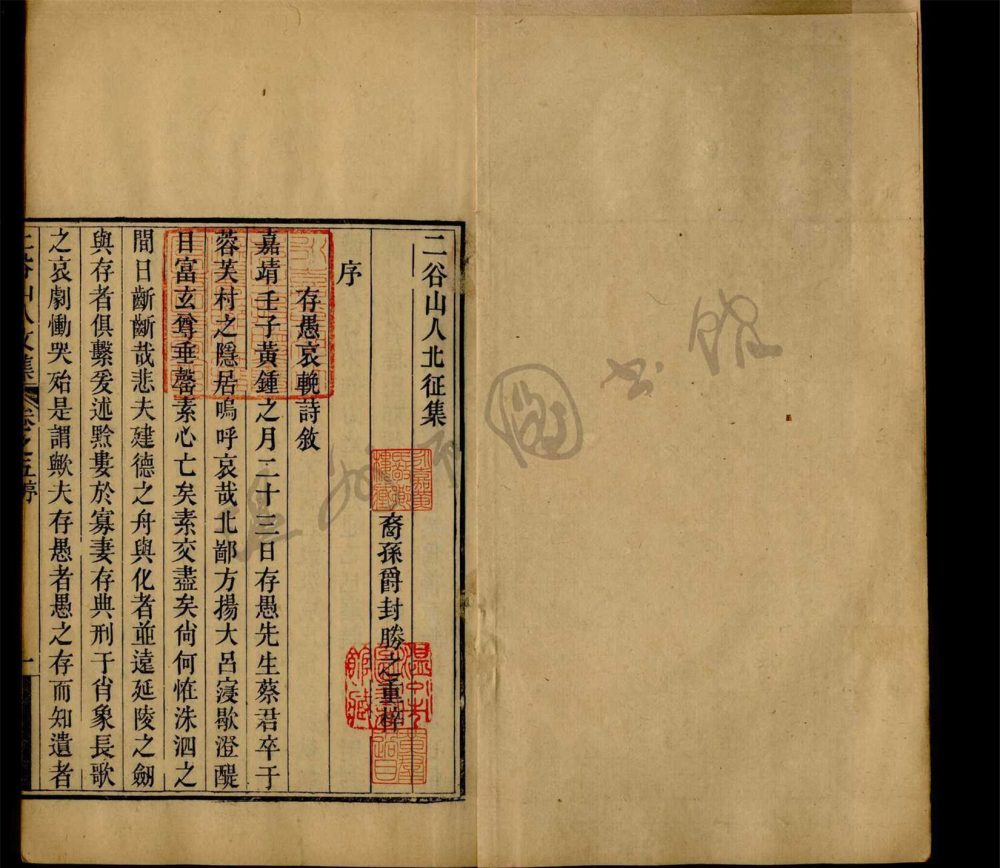 二谷山人北征集
裔孫爵封勝之重梓
序
存愚哀輓詩敘
嘉靖壬子黃鍾之月二十三日存愚先生蔡君卒于
蓉芙村之隱居嗚呼哀哉北鄙方揚大呂寖歇澄醍
日富玄尊垂罄素心亡矣素交盡矣尙何恠洙泗之
間日齗齗哉悲夫建德之舟與化者並遠延陵之劒
與存者俱繫爰述黔婁於寡妻存典刑于肖象長歌
之哀劇慟哭殆是謂歟夫存愚者愚之存而知遺者
二谷山人文集 卷之五序 一
溫州市圖書館
溫州市圖書館藏